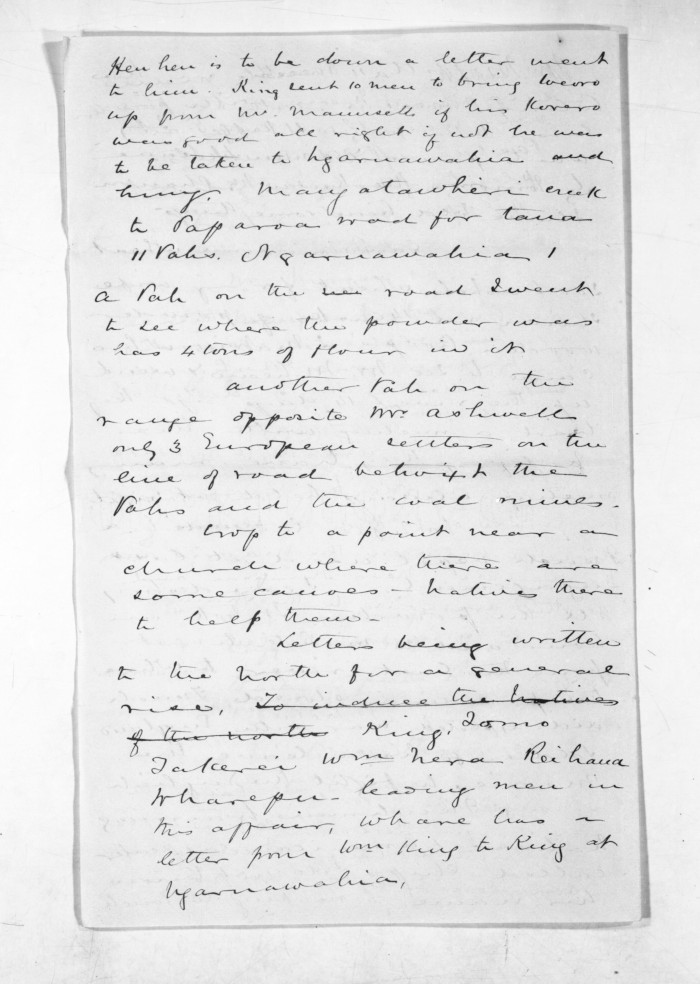 Heuheu is to be down a letter went
to him. King sent 10 men to bring
up from Mr. Maunsells if his Korero
was good all right if not he was
to be taken to Ngarnawahia and
hung. Mangatawhiri creek
to Paparoa road for taua
11 Pahs. Ngarnawahia 1
a Pah on the road I went
to see where the powder was
has 4 tons of flour in it
another Pah on the
range opposite Mr. Ashwell
only 3 European settlers on the
line of road betwixt the
Pahs and the coal mines.
to a point near a
church where there are
some canoes - Natives there
to help them -
Letters being written
to the North for a general
rise, To induce the Natives
of the north King, Tomo
Takerei Wm Nera Reihana
Wharepu - leading men in
this affair, whare has a
letter from Wm King to King at
Ngarnawahia,